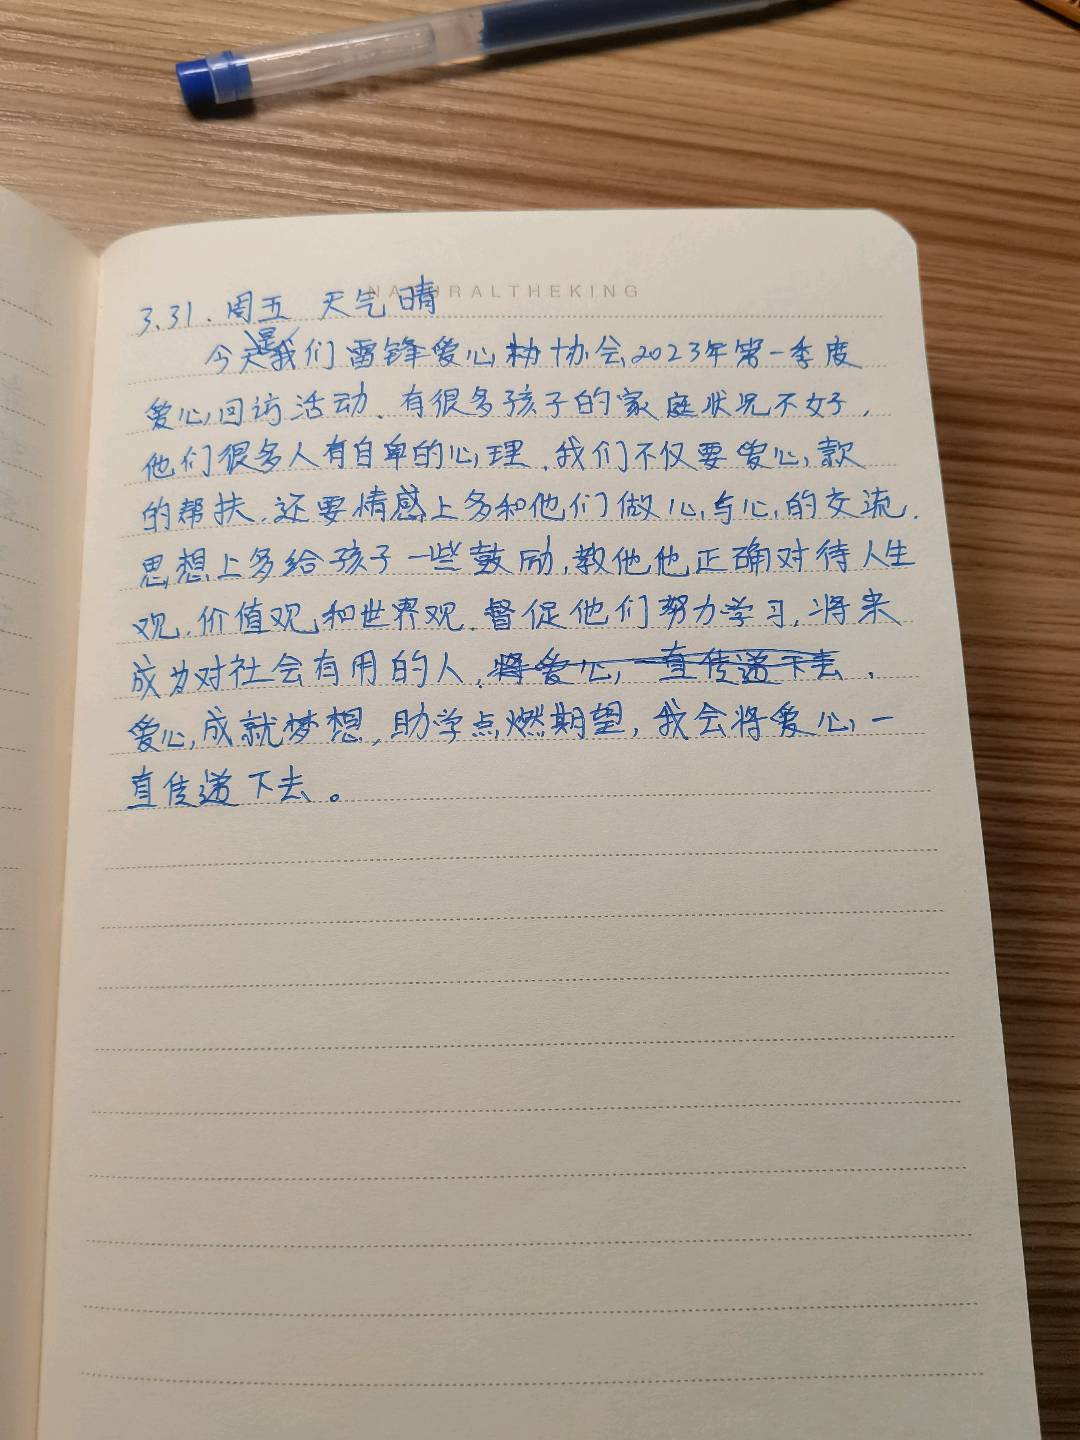 NATURALTHEKING
3.31. 周五 天气晴
今天是我们雷锋爱心协会2023年第一季度
爱心回访活动.有很多孩子的家庭状况不好,
他们很多人有自卑的心理.我们不仅要爱心款
的帮扶.还要情感上多和他们做心与心的交流.
思想上多给孩子一些鼓励,教他他正确对待人生
观.价值观和世界观.督促他们努力学习,将来
成为对社会有用的人.将爱心一直传递下去.
爱心成就梦想,助学点燃期望,我会将爱心一
直传递下去。